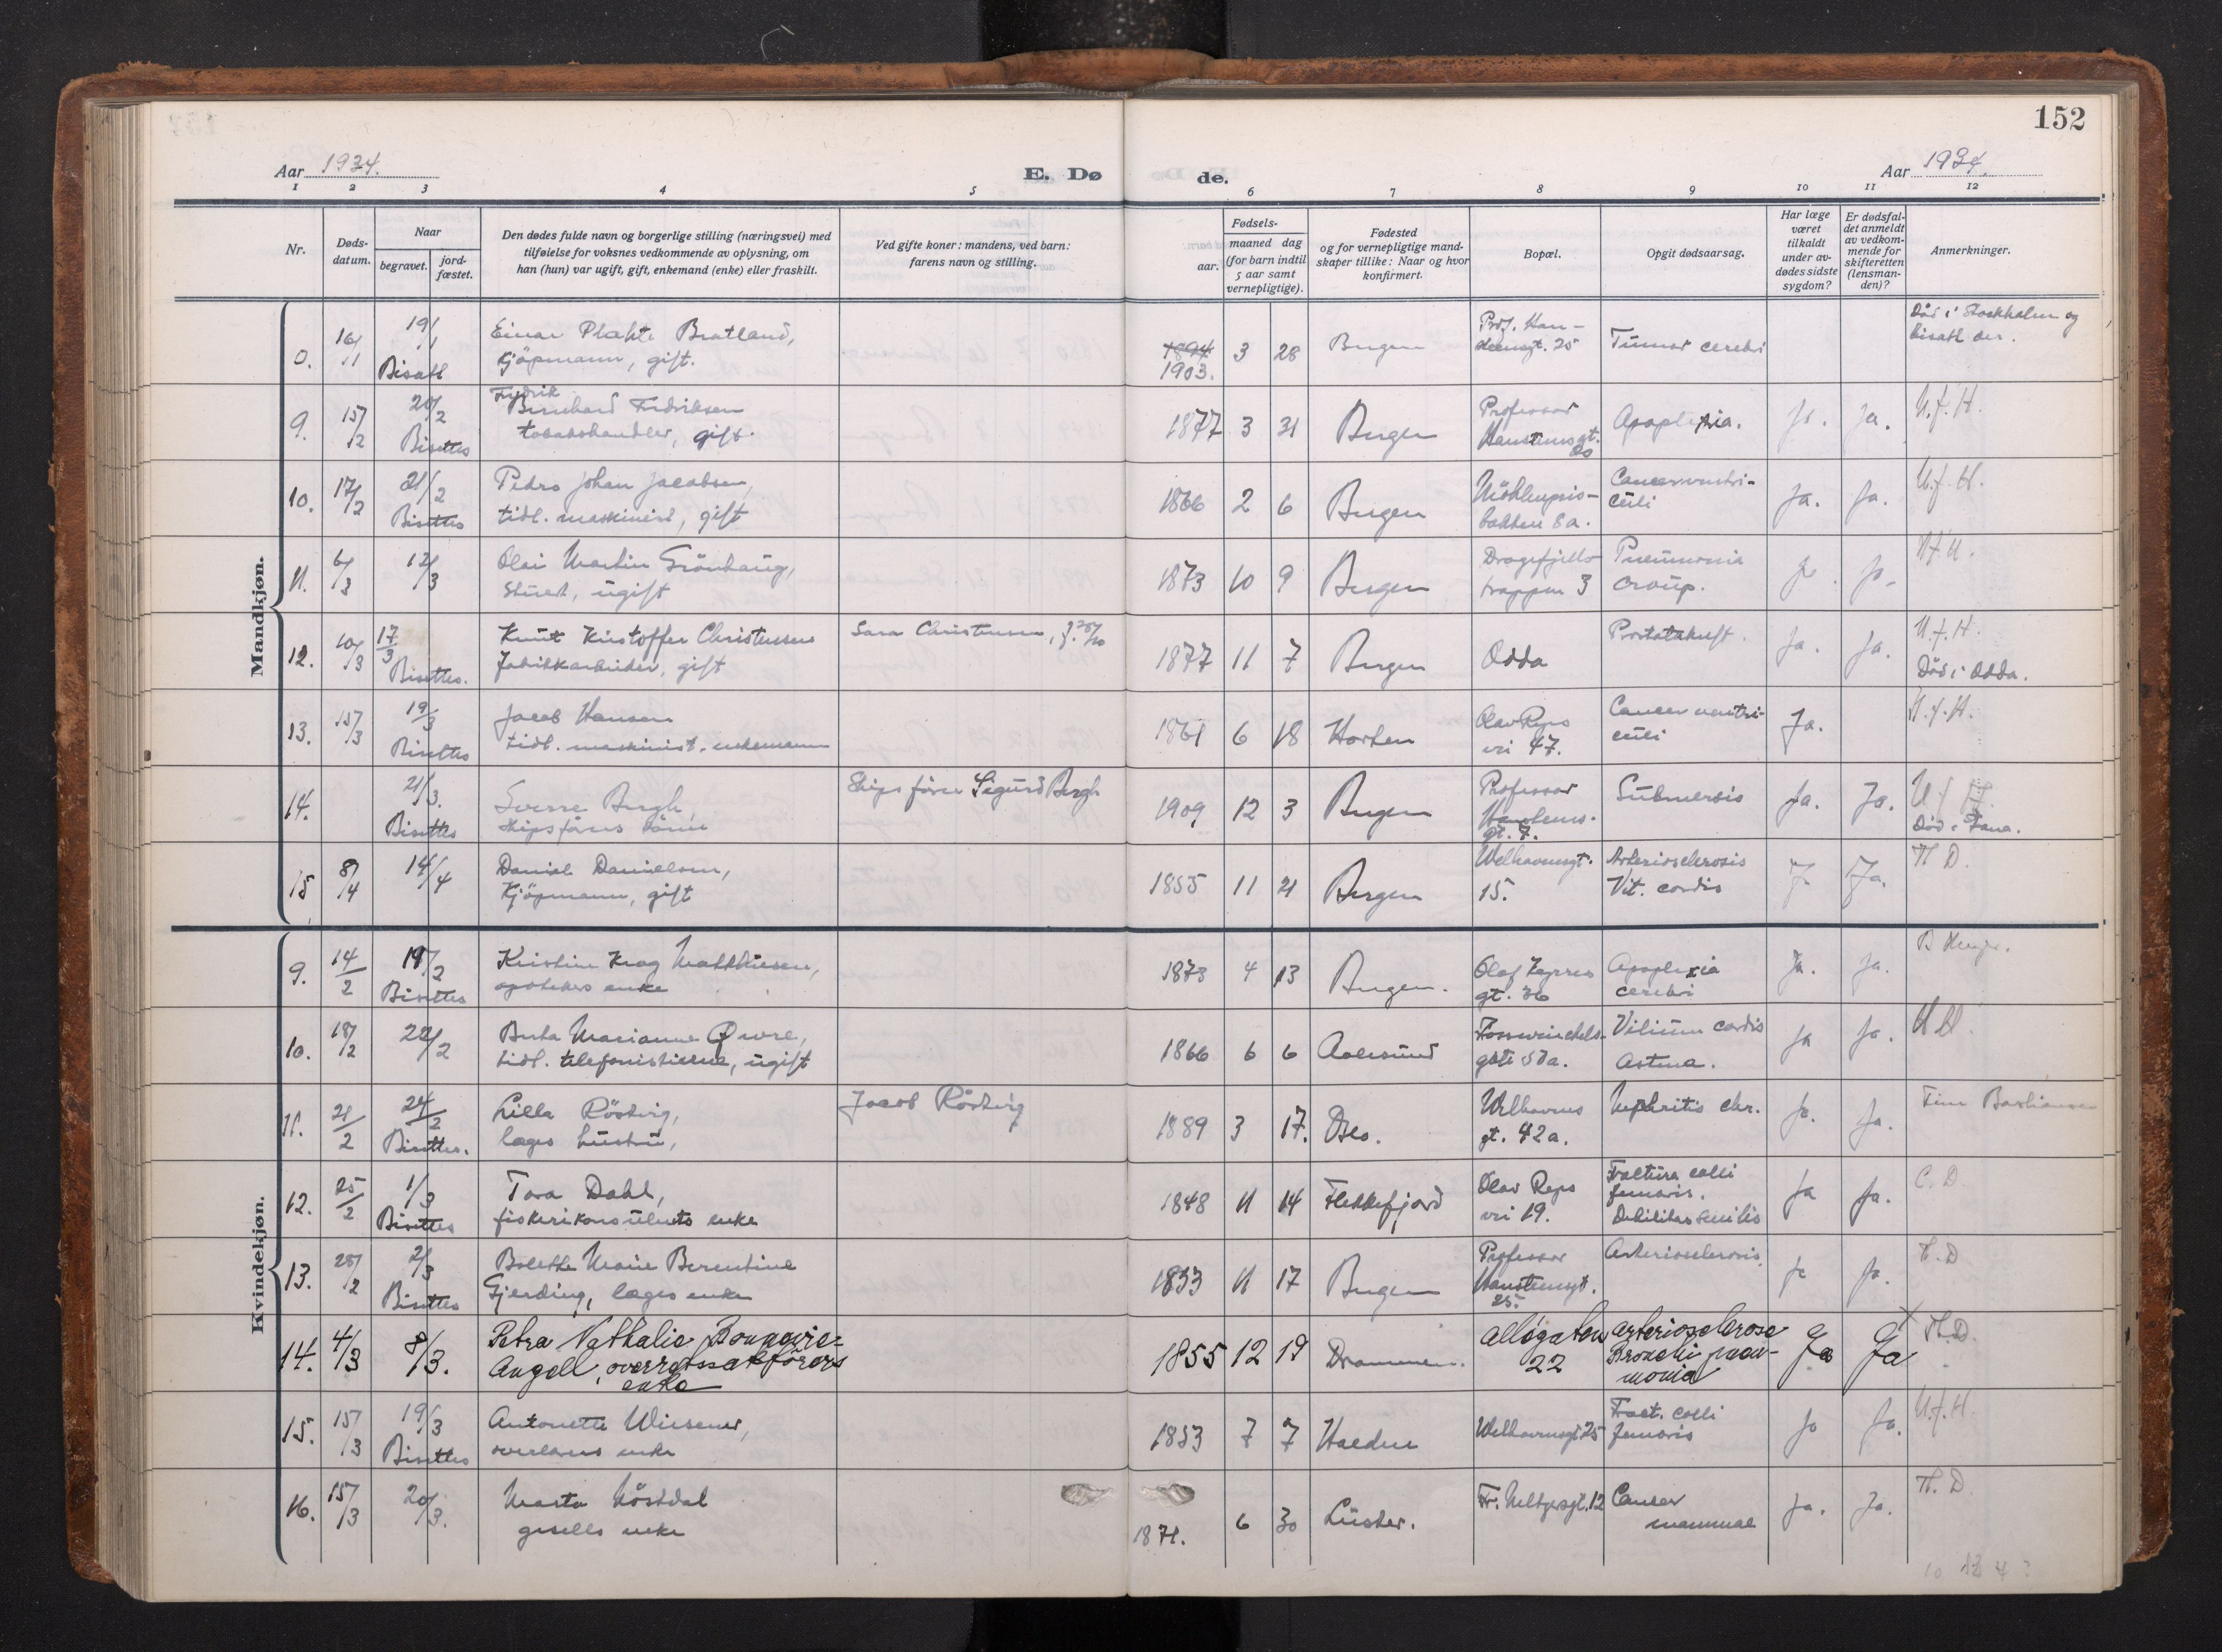 152
Aar 1934.
E. Dø
de.
Aar 1934.
1 2 3 4 5 6 7 8 9 10 11 12
Nr.
Døds-
datum.
Naar
begravet.
jord-
fæstet.
Den dødes fulde navn og borgerlige stilling (næringsvei) med
tilføielse for voksnes vedkommende av oplysning, om
han (hun) var ugift, gift, enkemand (enke) eller fraskilt.
Ved gifte koner: mandens, ved barn:
farens navn og stilling.
Fødsels-
aar.
maaned dag
(for barn indtil
5 aar samt
vernepligtige).
Fødested
og for vernepligtige mand-
skaper tillike: Naar og hvor
konfirmert.
Bopæl.
Opgit dødsaarsag.
Har læge
været
tilkaldt
under av-
dødes sidste
sygdom?
Er dødsfal-
det anmeldt
av vedkom-
mende for
skifteretten
(lensman-
den)?
Anmerkninger.
Mandkjøn.
0. 16/1 19/1 Bisatt
Einar Plahte Bratland,
Kjöpmann, gift.
1894 1903. 3 28 Bergen
gt. 25
Tumor cerebri
Död i Stockholm og
bisatt der.
9. 15/2 20/2 Bisettes
Fredrik
Bernhard Fredriksen
tobakshandler, gift.
1877 3 31 Bergen
Professor
Hansteensgt.
Apoplexia. Ja. Ja. U.f.H.
10. 17/2 21/2 Bisettes
Pedro Johan Jacobsen,
tidl. maskinist, gift
1866 2 6 Bergen
Möhlenpris-
bakken 8a.
Cancer ventri-
culi
Ja. Ja. U.f.H.
11. 6/3 12/3
Olai Martin Grönhaug,
Stuert, ugift
1873 10 9 Bergen
Dragefjells-
trappen 3
Pneumonia
croup.
Ja. Ja.
12. 10/3 17/3 Bisettes.
Knut Kristoffer Christensen
Fabrikkarbeider, gift
Sara Christensen, f.
1877 11 7 Bergen
Odda
Prostatakreft.
Ja. Ja. U.f.H.
Död i Odda.
13. 15/3 19/3 Bisettes
Jacob Hansen
tidl. maskinist, enkemann
1861 6 18 Horten
Olav Ryes
vei 47.
Cancer ventri-
culi
Ja. U.f.H.
14. 21/3. Bisettes
Sverre Bergh,
skipsförers sönn
Skipsförer Sigurd Bergh
1909 12 3 Bergen
Professor
Hansteens-
gt. 7.
Submersio
Ja. Ja. U.f.H.
Död i Fana.
15 8/4 14/4
Daniel Danielsen,
Kjöpmann, gift
1855 11 21 Bergen
Welhavensgt.
15.
Arteriosclerosis
Vit. cordis
Ja. Th D.
Kvindekjøn.
9. 14/2 19/2 Bisettes
Kristine Krag Matthiesen,
apotekers enke
1873 4 13 Bergen.
Olaf Kyrres
gt. 36
Apoplexia
cerebri
Ja. Ja.
10. 18/2 22/2
Berta Marianne Qvore,
tidl. telefonistinne, ugift
1866 6 6 Aalesund
Fosswinckels-
gate
Vitium cordis
Astma.
Ja Ja.
11. 21/2 24/2 Bisettes.
Lilla Röstvig,
læges hustru,
Jacob Röstvig
1889 3 17. Oslo.
Welhavens
gt. 42a.
Nephritis chr.
Ja. Ja.
12. 25/2 1/3 Bisettes
Tora Dahl,
fiskerikonsulents enke
1848 11 14 Flekkefjord
Olav Ryes
vei 19.
Fractura colli
femoris.
Debilitas senilis
Ja Ja. C. D
13. 28/2 2/3 Bisettes
Bolette Marie Berentine
Gjerding, læges enke
1853 11 17 Bergen
Professor
Hansteensgt.
25.
Arteriosclerosis.
Ja Ja. T. D
14. 4/3 8/3.
Petra Nathalie Bonnevie-
Angell, overretssakförers
enke
1855 12 19 Drammen.
Allégaten
22
Arteriosclerose
Bronchi pneu-
monia
Ja Ja Th.D.
15. 15/3 19/3 Bisettes
Antonette Wiesener,
overlærers enke
1853 7 7 Halden
Welhavensgt 25
Fract. colli
femoris
Ja Ja. U.f.H.
16. 15/3 20/3.
Marta Nöstdal
gesells enke
1871. 6 30 Luster.
Fr. Meltzersgt. 12
Cancer
mammae
Ja. Ja. Th. D.